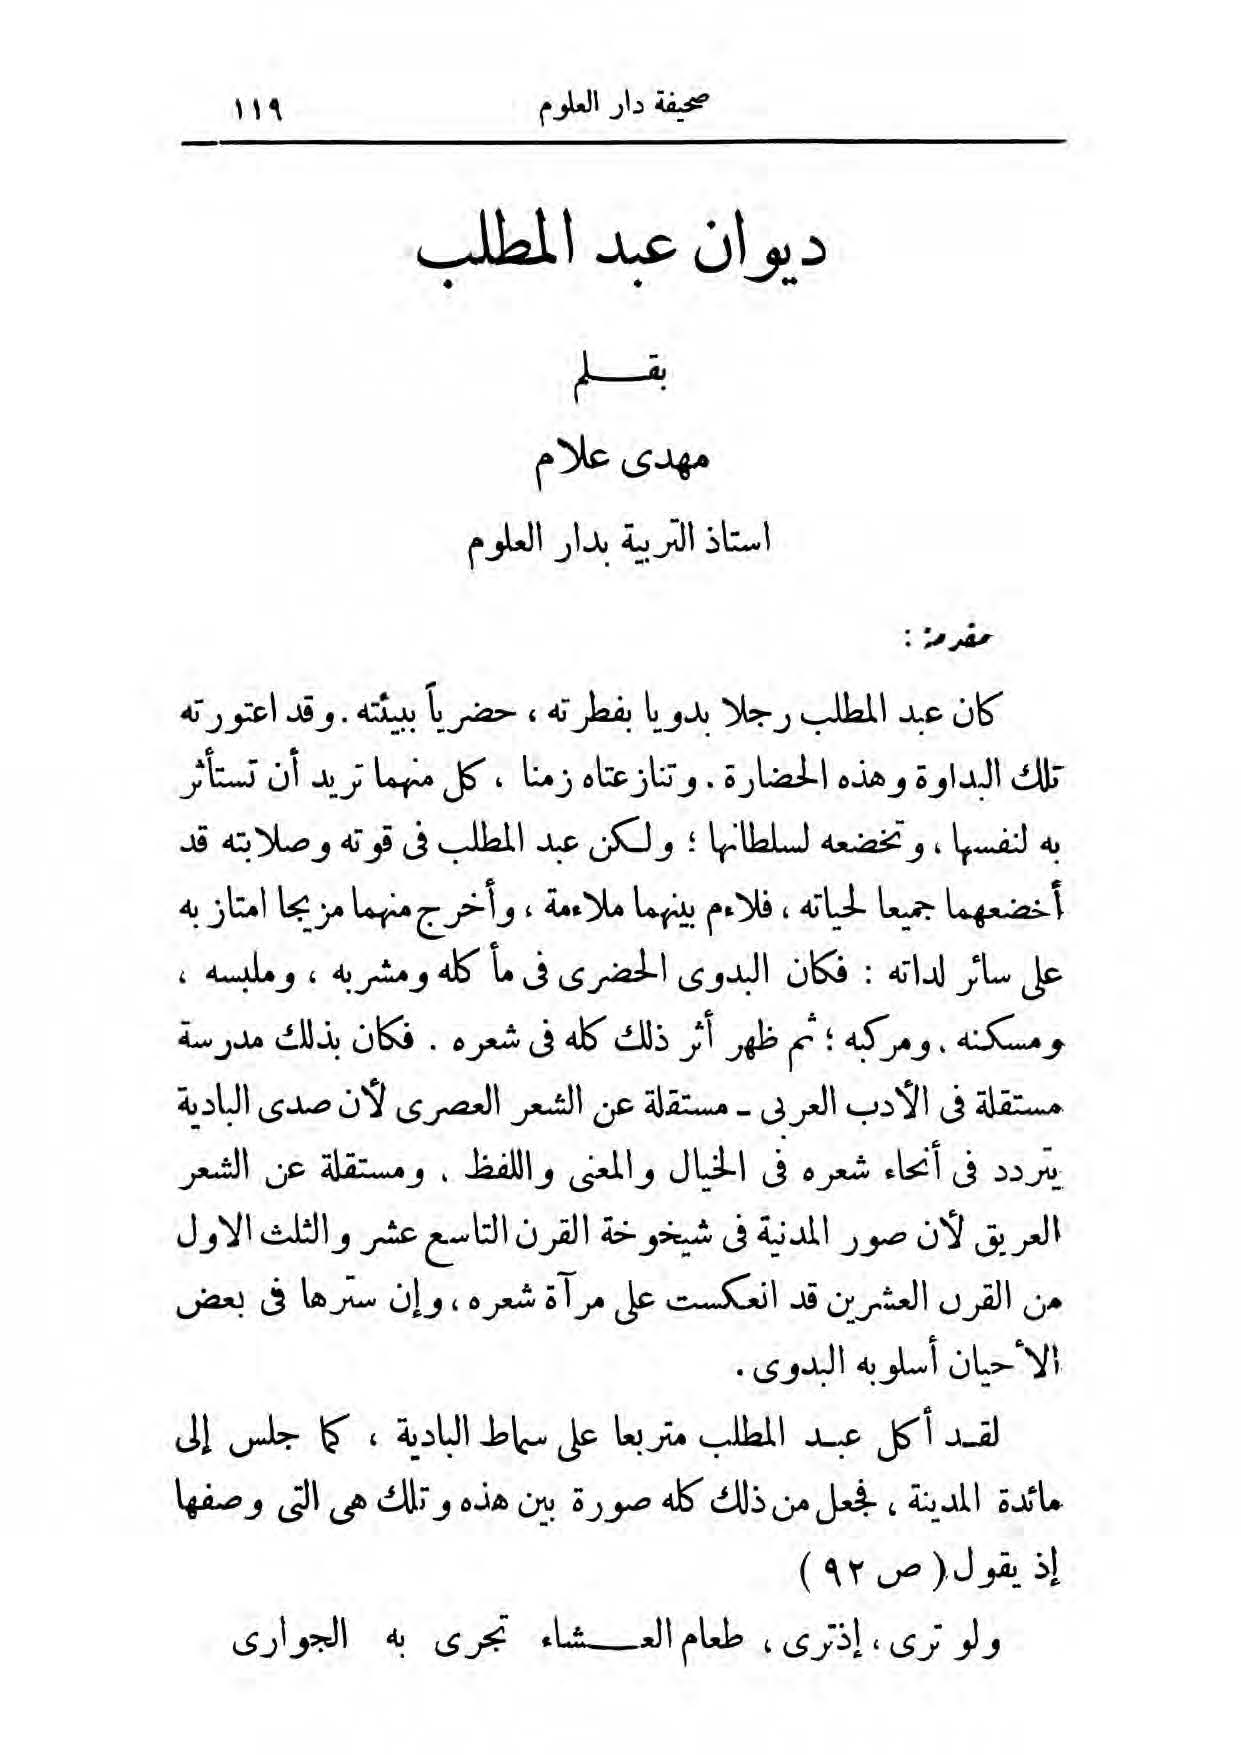 صحيفة دار العلوم ١١٩
ديوان عبد المطلب
بقلم
مهدى علام
استاذ التربية بدار العلوم
مقدمة :
كان عبد المطلب رجلا بدويا بفطرته ، حضرياً ببيئته . وقد اعتورته
تلك البداوة وهذه الحضارة . وتنازعتاه زمنا ، كل منهما تريد أن تستأثر
به لنفسها ، وتخضعه لسلطانها ؛ ولكن عبد المطلب فى قوته وصلابته قد
أخضعهما جميعا لحياته ، فلاءم بينهما ملاءمة ، وأخرج منهما مزيجا امتاز به
على سائر لداته : فكان البدوى الحضرى فى مأكله ومشربه ، وملبسه ،
ومسكنه . ومركبه ؛ ثم ظهر أثر ذلك كله فى شعره . فكان بذلك مدرسة
مستقلة فى الأدب العربى - مستقلة عن الشعر العصرى لأن صدى البادية
يتردد فى أنحاء شعره فى الخيال والمعنى واللفظ . ومستقلة عن الشعر
العريق لأن صور المدنية فى شيخوخة القرن التاسع عشر والثلث الاول
من القرن العشرين قد انعكست على مرآة شعره ، وإن سترها فى بعض
الأحيان أسلوبه البدوى .
لقد أكل عبد المطلب متربعا على سماط البادية ، كما جلس إلى
مائدة المدينة ، فجعل من ذلك كله صورة بين هذه وتلك هى التى وصفها
إذ يقول ( ص ٩٢ )
ولو ترى ، إذ ترى ، طعام العشاء تجرى به الجوارى